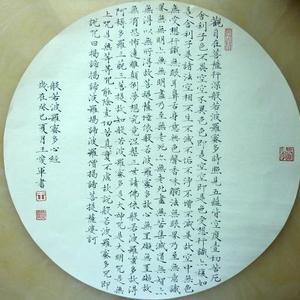 觀自在菩薩行深般若波羅蜜多時照見五蘊皆空度一切苦厄
舍利子色不異空空不異色色即是空空即是色受想行識亦復如
是舍利子是諸法空相不生不滅不垢不淨不增不減是故空中無色
無受想行識無眼耳鼻舌身意無色聲香味觸法無眼界乃至無意識
界無無明亦無無明盡乃至無老死亦無老死盡無苦集滅道無智亦
無得以無所得故菩提薩埵依般若波羅蜜多故心無罣礙無罣礙故
無有恐怖遠離顛倒夢想究竟涅槃三世諸佛依般若波羅蜜多故得
阿耨多羅三藐三菩提故知般若波羅蜜多是大神咒是大明咒是無
上咒是無等等咒能除一切苦真實不虛故說般若波羅蜜多咒即
說咒曰揭諦揭諦波羅揭諦波羅僧揭諦菩提薩婆訶
般若波羅蜜多心經
歲在癸巳夏月王愛軍書